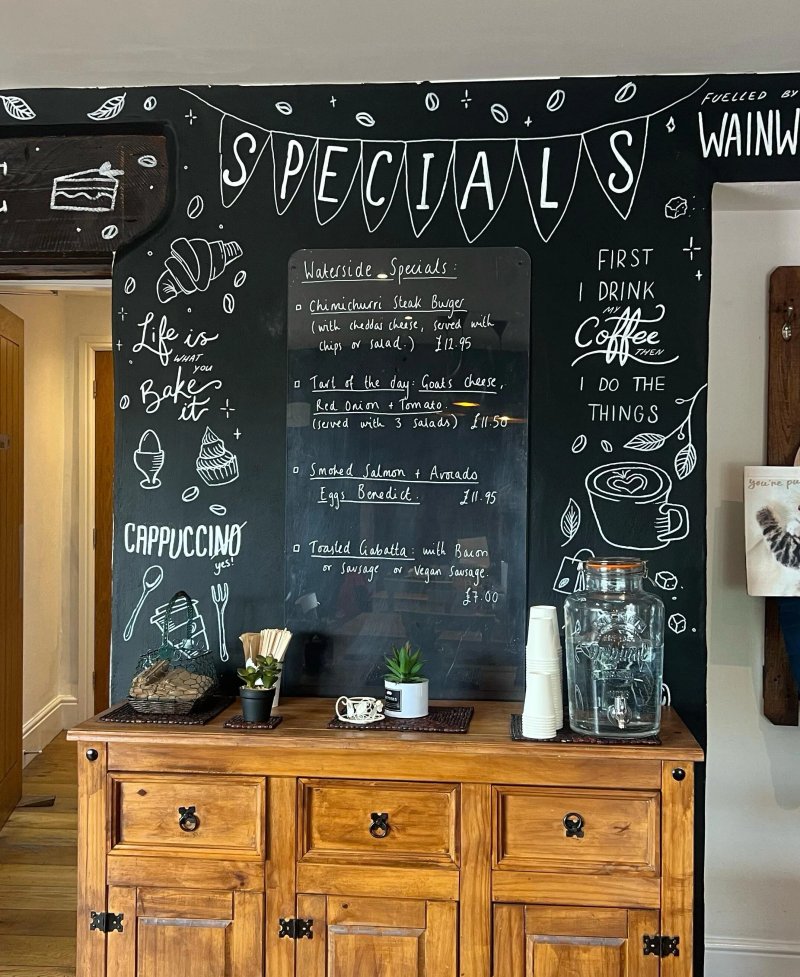 FUELLED BY
WAINW
SPECIALS
Waterside Specials:
Chimichurri Steak Burger
(with cheddar cheese, served with
chips or salad.) £12.95
Tart of the day: Goats cheese,
Red Onion + Tomato
(served with 3 salads) £11.50
Smoked Salmon + Avocado
Eggs Benedict. £11.95
Toasted Ciabatta: with Bacon
or sausage or vegan sausage.
£7.00
Life is
WHAT
YOU
Bake
it
CAPPUCCINO
yes!
FIRST
I DRINK
MY
Coffee
THEN
I DO THE
THINGS
you're pu